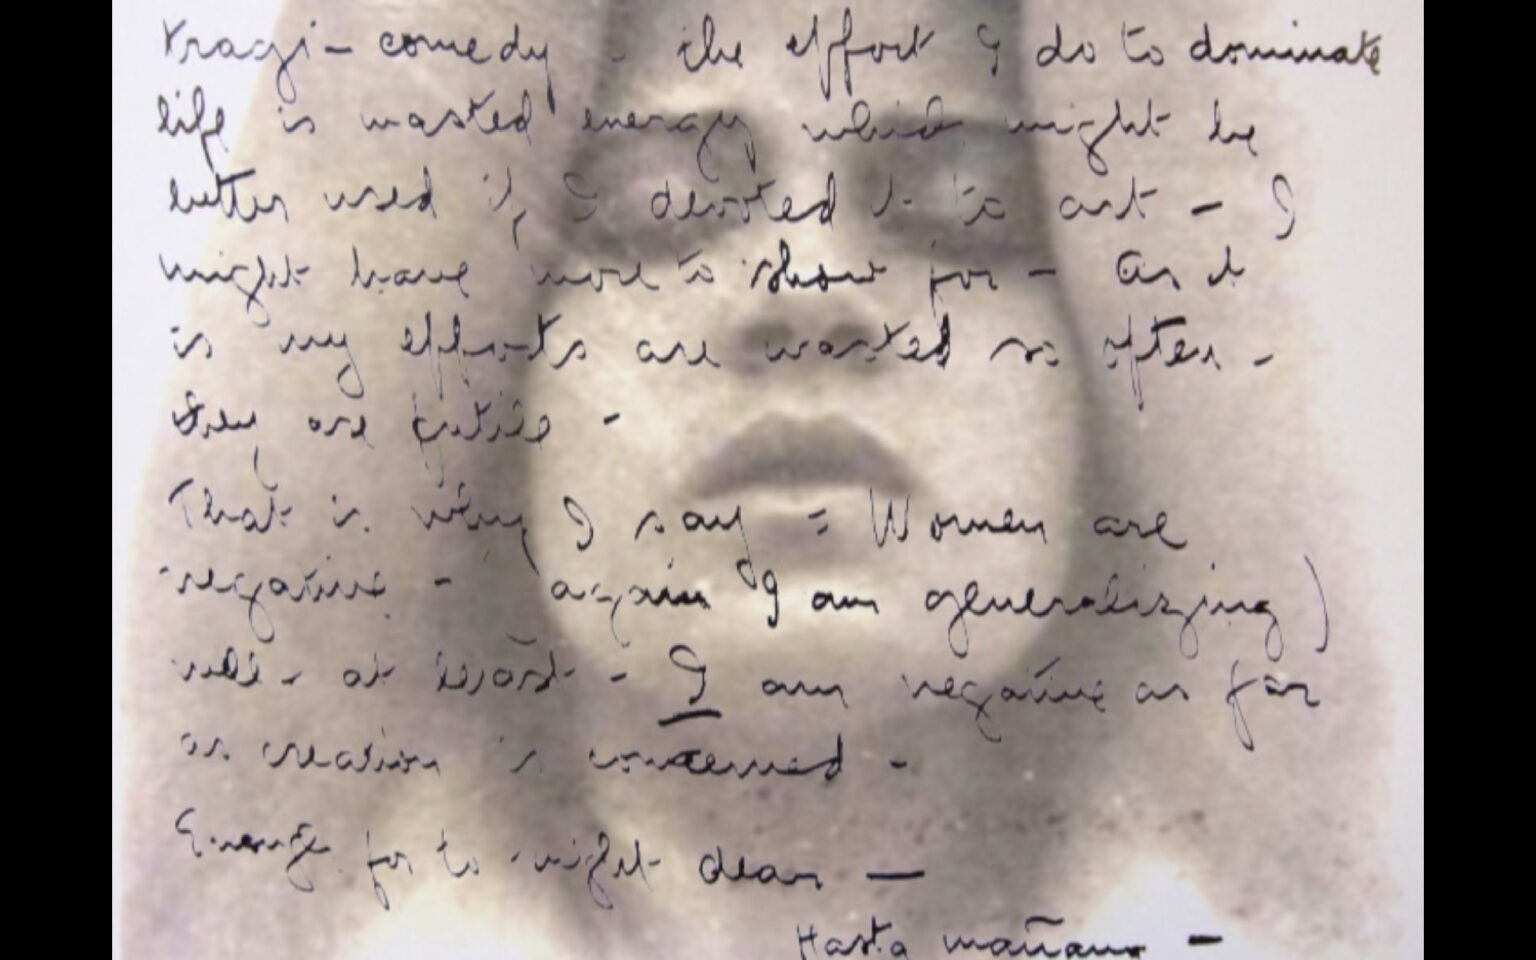 tragi-comedy - the effort I do to dominate
life is wasted energy which might be
better used if I devoted it to art - I
might have more to show for - As it
is my efforts are wasted so often -
they are futile -
That is why I say = Women are
negative - again I am generalizing)
well - at least - I am negative as far
as creation is concerned -
Enough for to-night dear —
Hasta mañana -